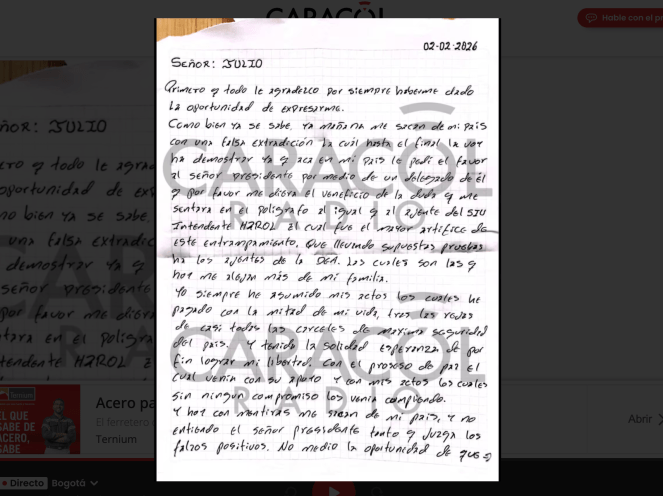 CARACOL
Hable con el pr
02-02-2026
SEÑOR: JULIO
Primero q todo le agradezco por siempre haberme dado
La oportunidad de expresarme.
Como bien ya se sabe, ya mañana me sacan de mi pais
con una falsa extradición la cual hasta el final la voy
ha demostrar ya q aca en mi pais le pedi el favor
al señor presidente por medio de un delegado de él
q por favor me diera el veneficio de la duda q me
sentara en el poligrafo al igual q al ajente del
Intendente el cual fue el mayor artifice de
este entrampamiento. Que llevando supuestas pruebas
ha los ajentes de la DEA. Las cuales son las q
hoy me alejan más de mi familia.
Yo siempre he asumido mis actos los cuales he
pagado con la mitad de mi vida, tras las rejas
de casi todas las carceles de maxima seguridad
del pais. Y tenido la solidad esperanza de por
fin lograr mi libertad. Con el proceso de paz el
cual venia con su apoyo Y con mis actos los cuales
sin ningun compromiso los venia cumpliendo.
Y hoy con mentiras me sacan de mi pais, Y no
entiendo el señor presidente tanto q Juzga los
falsos positivos. No medio la oportunidad de que
CARACOL
RADIO
CARACOL
RADIO
ñor: JULIO
Ternium
EL QUE
SABE DE
ACERO,
SABE
Acero pa
El ferretero
Ternium
Abrir
Directo Bogotá